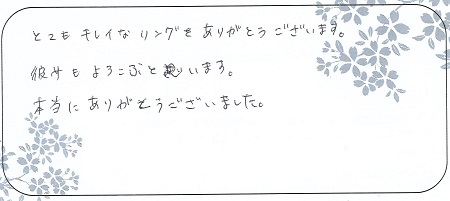 とてもキレイなリングをありがとうございます。
彼女もよろこぶと思います。
本当にありがとうございました。